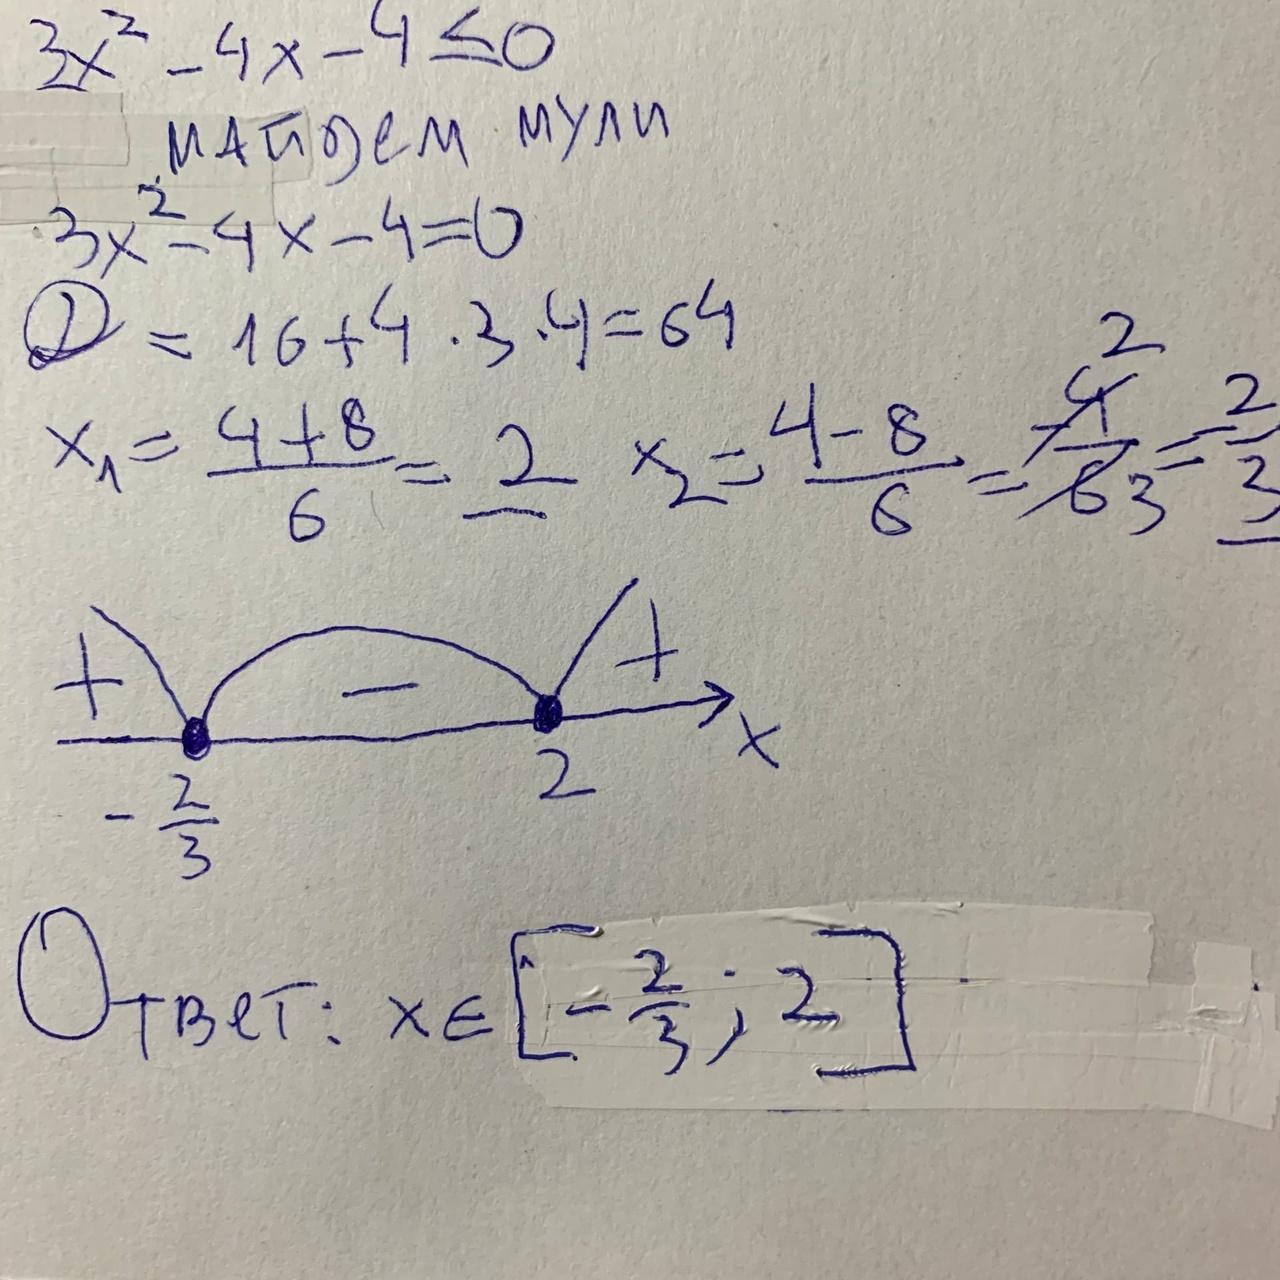 3x² - 4x - 4 ≤ 0
найдем нули
3x² - 4x - 4 = 0
D = 16 + 4 · 3 · 4 = 64
x₁ = (4 + 8)/6 = 2 x₂ = (4 - 8)/6 = -4/6 2/3 = -2/3
+ - +
-2/3 2 x
Ответ: x ∈ [-2/3; 2]